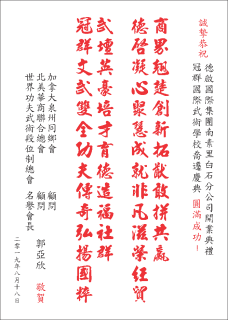 誠摯恭祝
德啟國際集團南素里白石分公司開業典禮
冠群國際武術學校喬遷慶典 圓滿成功！
商界翹楚創新拓拼共贏
德啟凝心聚慧成就非凡滋榮貿
武壇英豪培才育德造福社群
冠群文武雙全功夫傳奇弘揚國粹
加拿大泉州同鄉會 顧問
北美華商聯合總會 顧問
世界功夫武術段位制總會 名譽會長
郭亞欣 敬賀
二零一九年八月十八日